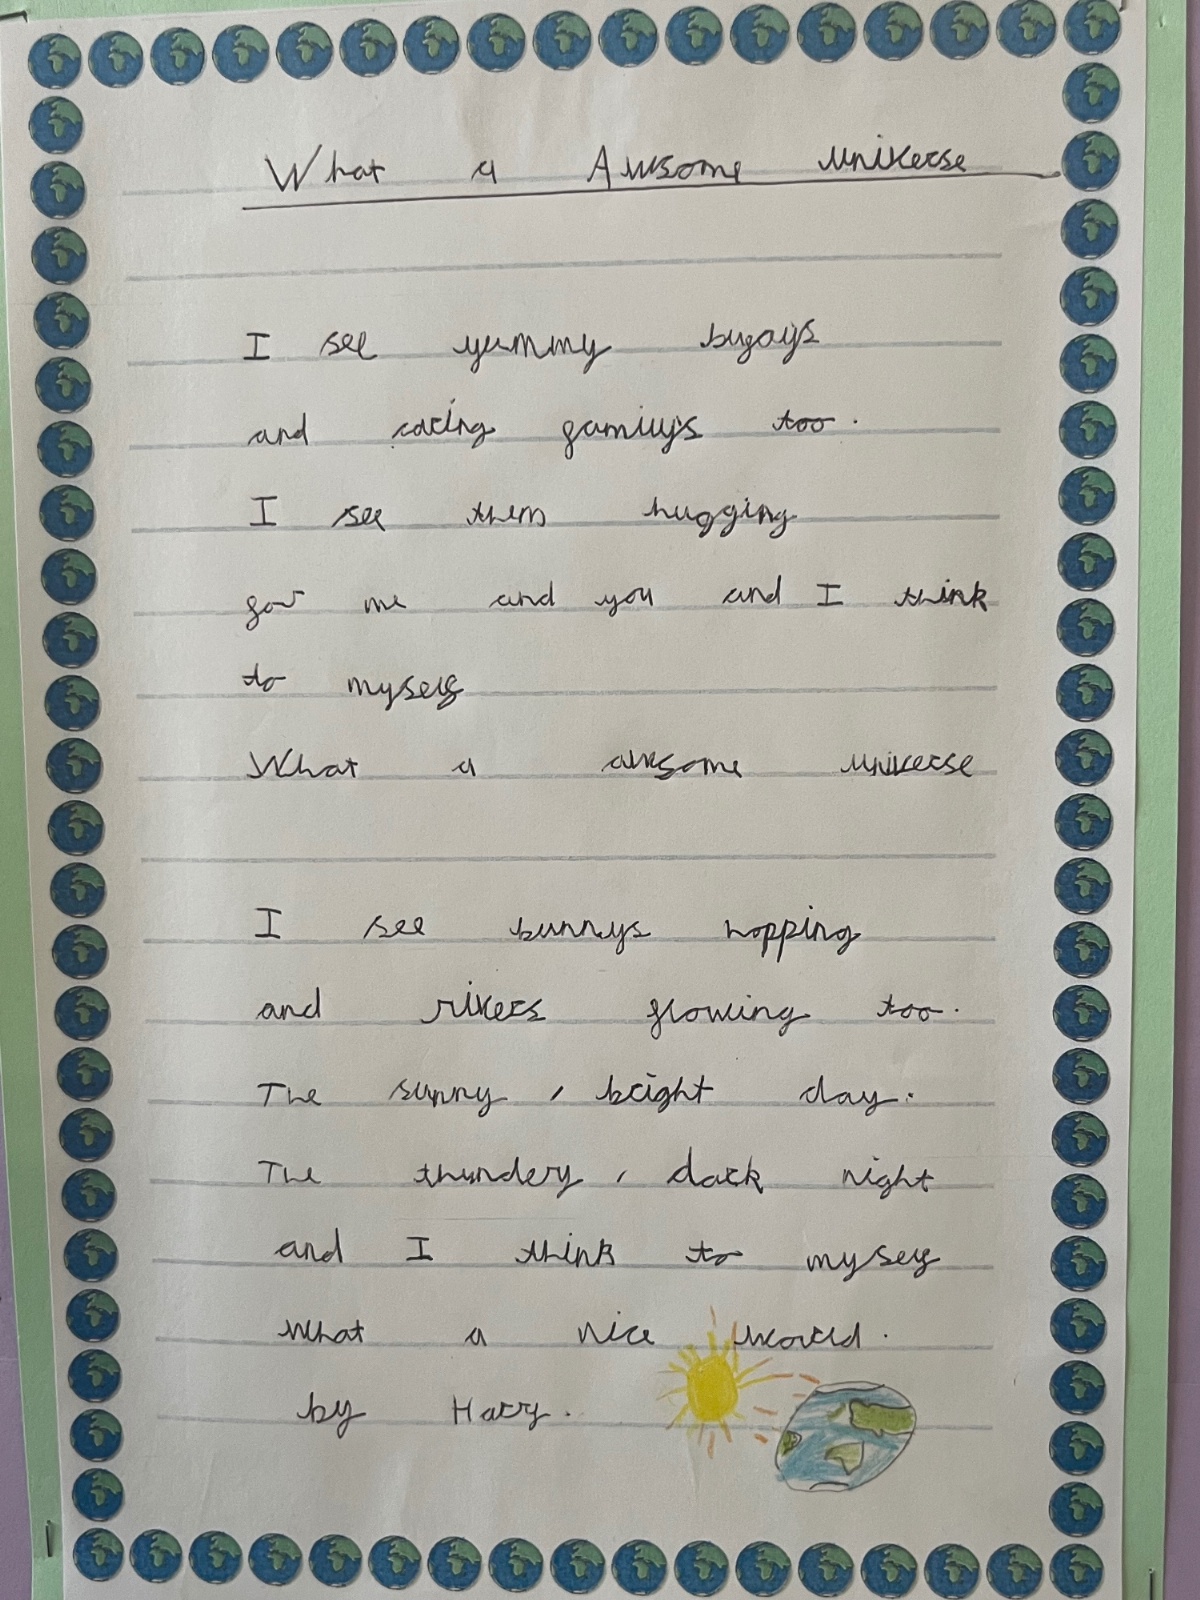 What a Awsome universe
I see yummy
and caring familys too.
I see them hugging
for me and you and I think
to myself
What a awsome universe
I see bunnys hopping
and rivers flowing too.
The sunny, bright day.
The thundery, dark night
and I think to myself
what a nice world.
by Harry.